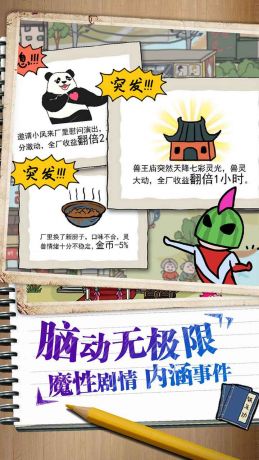 息!!!
邀请小凤来厂里慰问演出,
分激动，全厂收益翻倍2
突发!!!
兽王庙突然天降七彩灵光，兽灵
大动，全厂收益翻倍1小时。
突发!!!
厂里换了新厨子，口味不合，灵
兽情绪十分不稳定，金币-5%
脑动无极限
魔性剧情 内涵事件